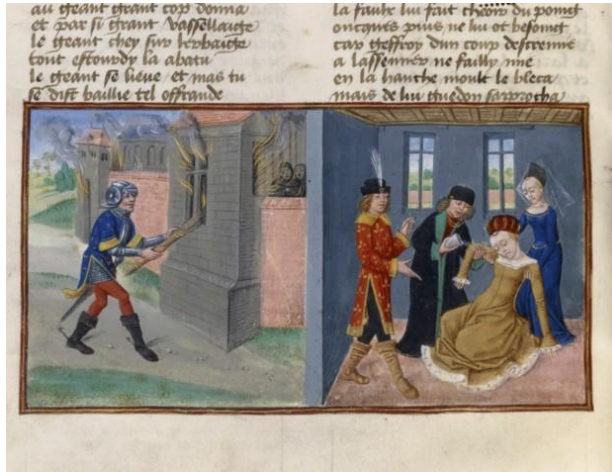 au geant grant cop donna
et par si grant vassellaige
le geant chey sur lerbaige
tout estourdy la abatu
le geant se lieve et mas tu
se dist baillie tel offrande
la faulx lui fait cheoir du poingt
oncques puis ne lui ot besoingt
car geffroy dun coup descremie
a lassenner ne failly mie
en la hanche moult le bleca
mais de lui guedon saprocha